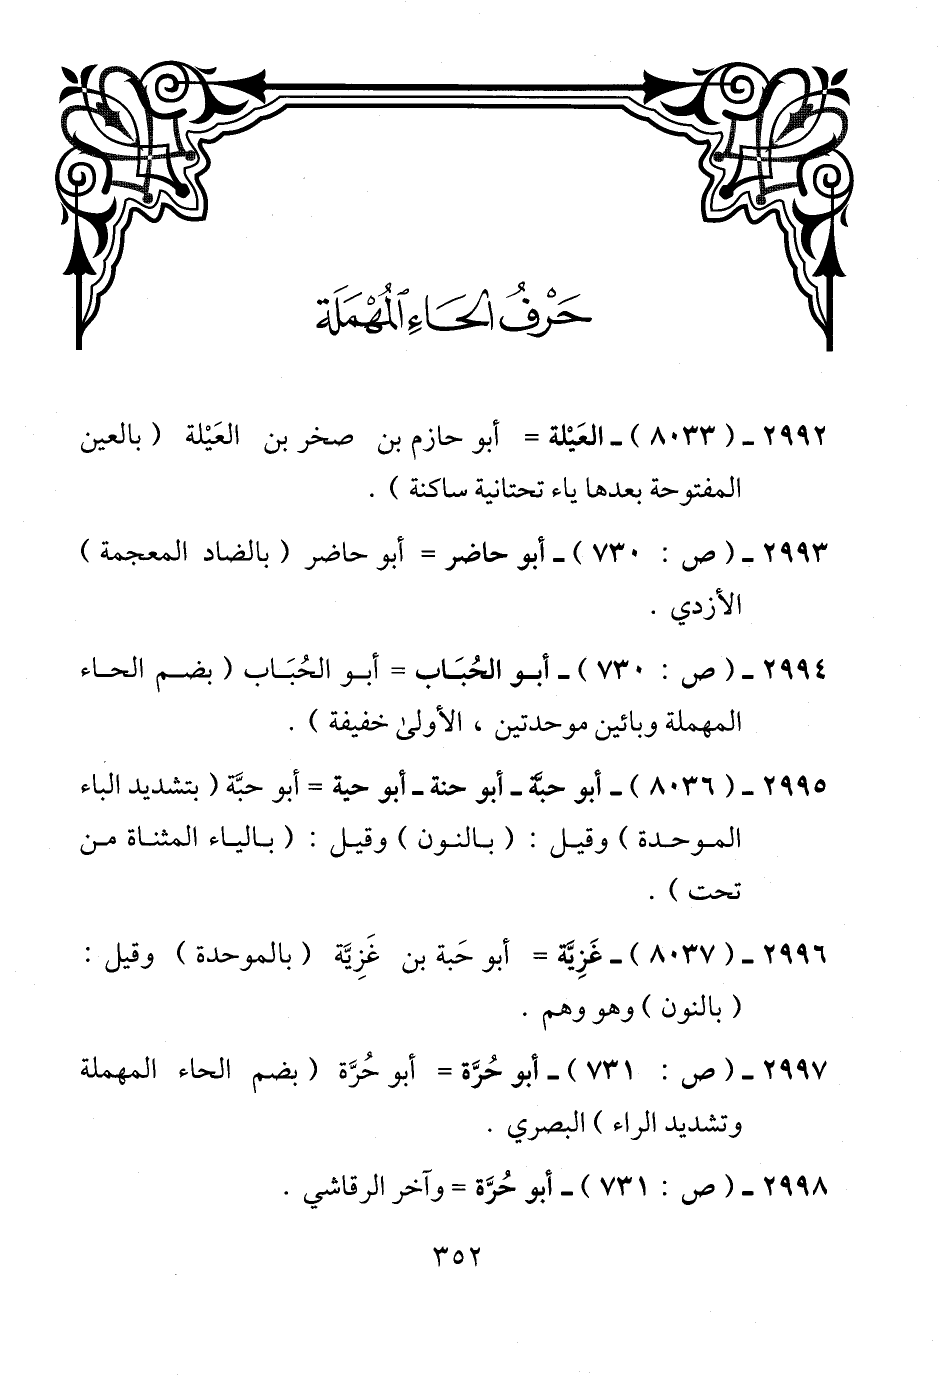 حَرْفُ الحَاءِ المُهْمَلَة
٢٩٩٢ ـ ( ٨٠٣٣ ) ـ العَيْلة = أبو حازم بن صخر بن العَيْلة ( بالعين
المفتوحة بعدها ياء تحتانية ساكنة ) .
٢٩٩٣ ـ ( ص : ٧٣٠ ) ـ أبو حاضر = أبو حاضر ( بالضاد المعجمة )
الأزدي .
٢٩٩٤ ـ ( ص : ٧٣٠ ) ـ أبو الحُبَاب = أبو الحُبَاب ( بضم الحاء
المهملة وبائين موحدتين ، الأولىٰ خفيفة ) .
٢٩٩٥ ـ ( ٨٠٣٦ ) ـ أبو حبَّة ـ أبو حنة ـ أبو حية = أبو حبَّة ( بتشديد الباء
الموحدة ) وقيل : ( بالنون ) وقيل : ( بالياء المثناة من
تحت ) .
٢٩٩٦ ـ ( ٨٠٣٧ ) ـ غَزِيَّة = أبو حَبة بن غَزِيَّة ( بالموحدة ) وقيل :
( بالنون ) وهو وهم .
٢٩٩٧ ـ ( ص : ٧٣١ ) ـ أبو حُرَّة = أبو حُرَّة ( بضم الحاء المهملة
وتشديد الراء ) البصري .
٢٩٩٨ ـ ( ص : ٧٣١ ) ـ أبو حُرَّة = وآخر الرقاشي .
٣٥٢